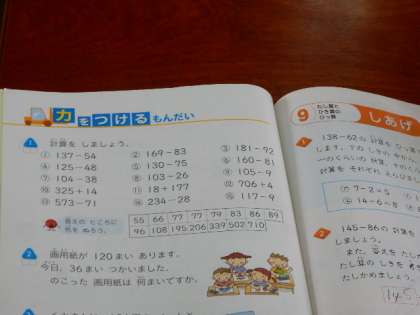 力をつけるもんだい
1 計算を しましょう。
① 137-54 ② 169-83 ③ 181-92
④ 125-48 ⑤ 130-75 ⑥ 160-81
⑦ 104-38 ⑧ 103-26 ⑨ 105-9
⑩ 325+14 ⑪ 18+177 ⑫ 706+4
⑬ 573-71 ⑭ 234-28 ⑮ 117-9
答えの ところに
色を ぬろう。
55 66 77 77 79 83 86 89
96 108 195 206 339 502 710
2 画用紙が 120まい あります。
今日、36まい つかいました。
のこった 画用紙は 何まいですか。
9 たし算と
ひき算の
ひっ算
しあげ
1 138-62の 計算を
します。
一のくらいの 計算、
計算を それぞれ
⑦ 7-2=5
14-6=8
2 145-86の 計算
しましょう。
また、答えを たし
たし算の しきを
たしかめましょう。
145